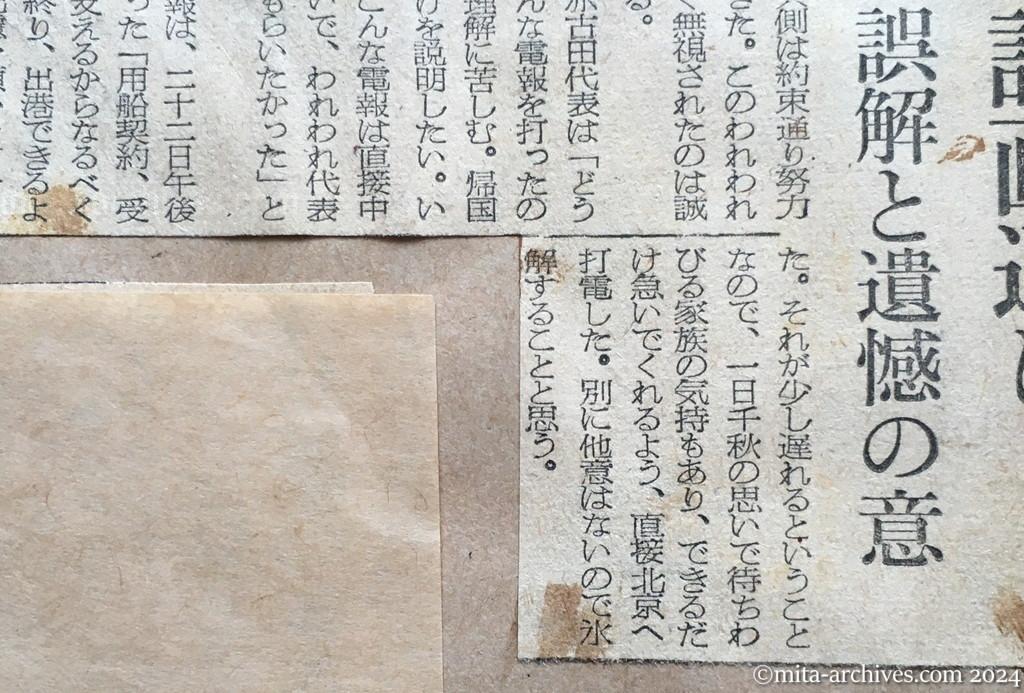 誤解と遺憾の意
側は約束通り努力
た。このわれわれ
く無視されたのは誠
る。
古田代表は「どう
んな電報を打ったの
理解に苦しむ。帰国
けを説明したい。い
こんな電報は直接中
いで、われわれ代表
もらいたかった」と
報は、二十二日午後
った「用船契約、受
支えるからなるべく
終り、出港できるよ
た。それが少し遅れるということ
なので、一日千秋の思いで待ちわ
びる家族の気持もあり、できるだ
け急いでくれるよう、直接北京へ
打電した。別に他意はないので氷
解することと思う。
©mita-archives.com 2024